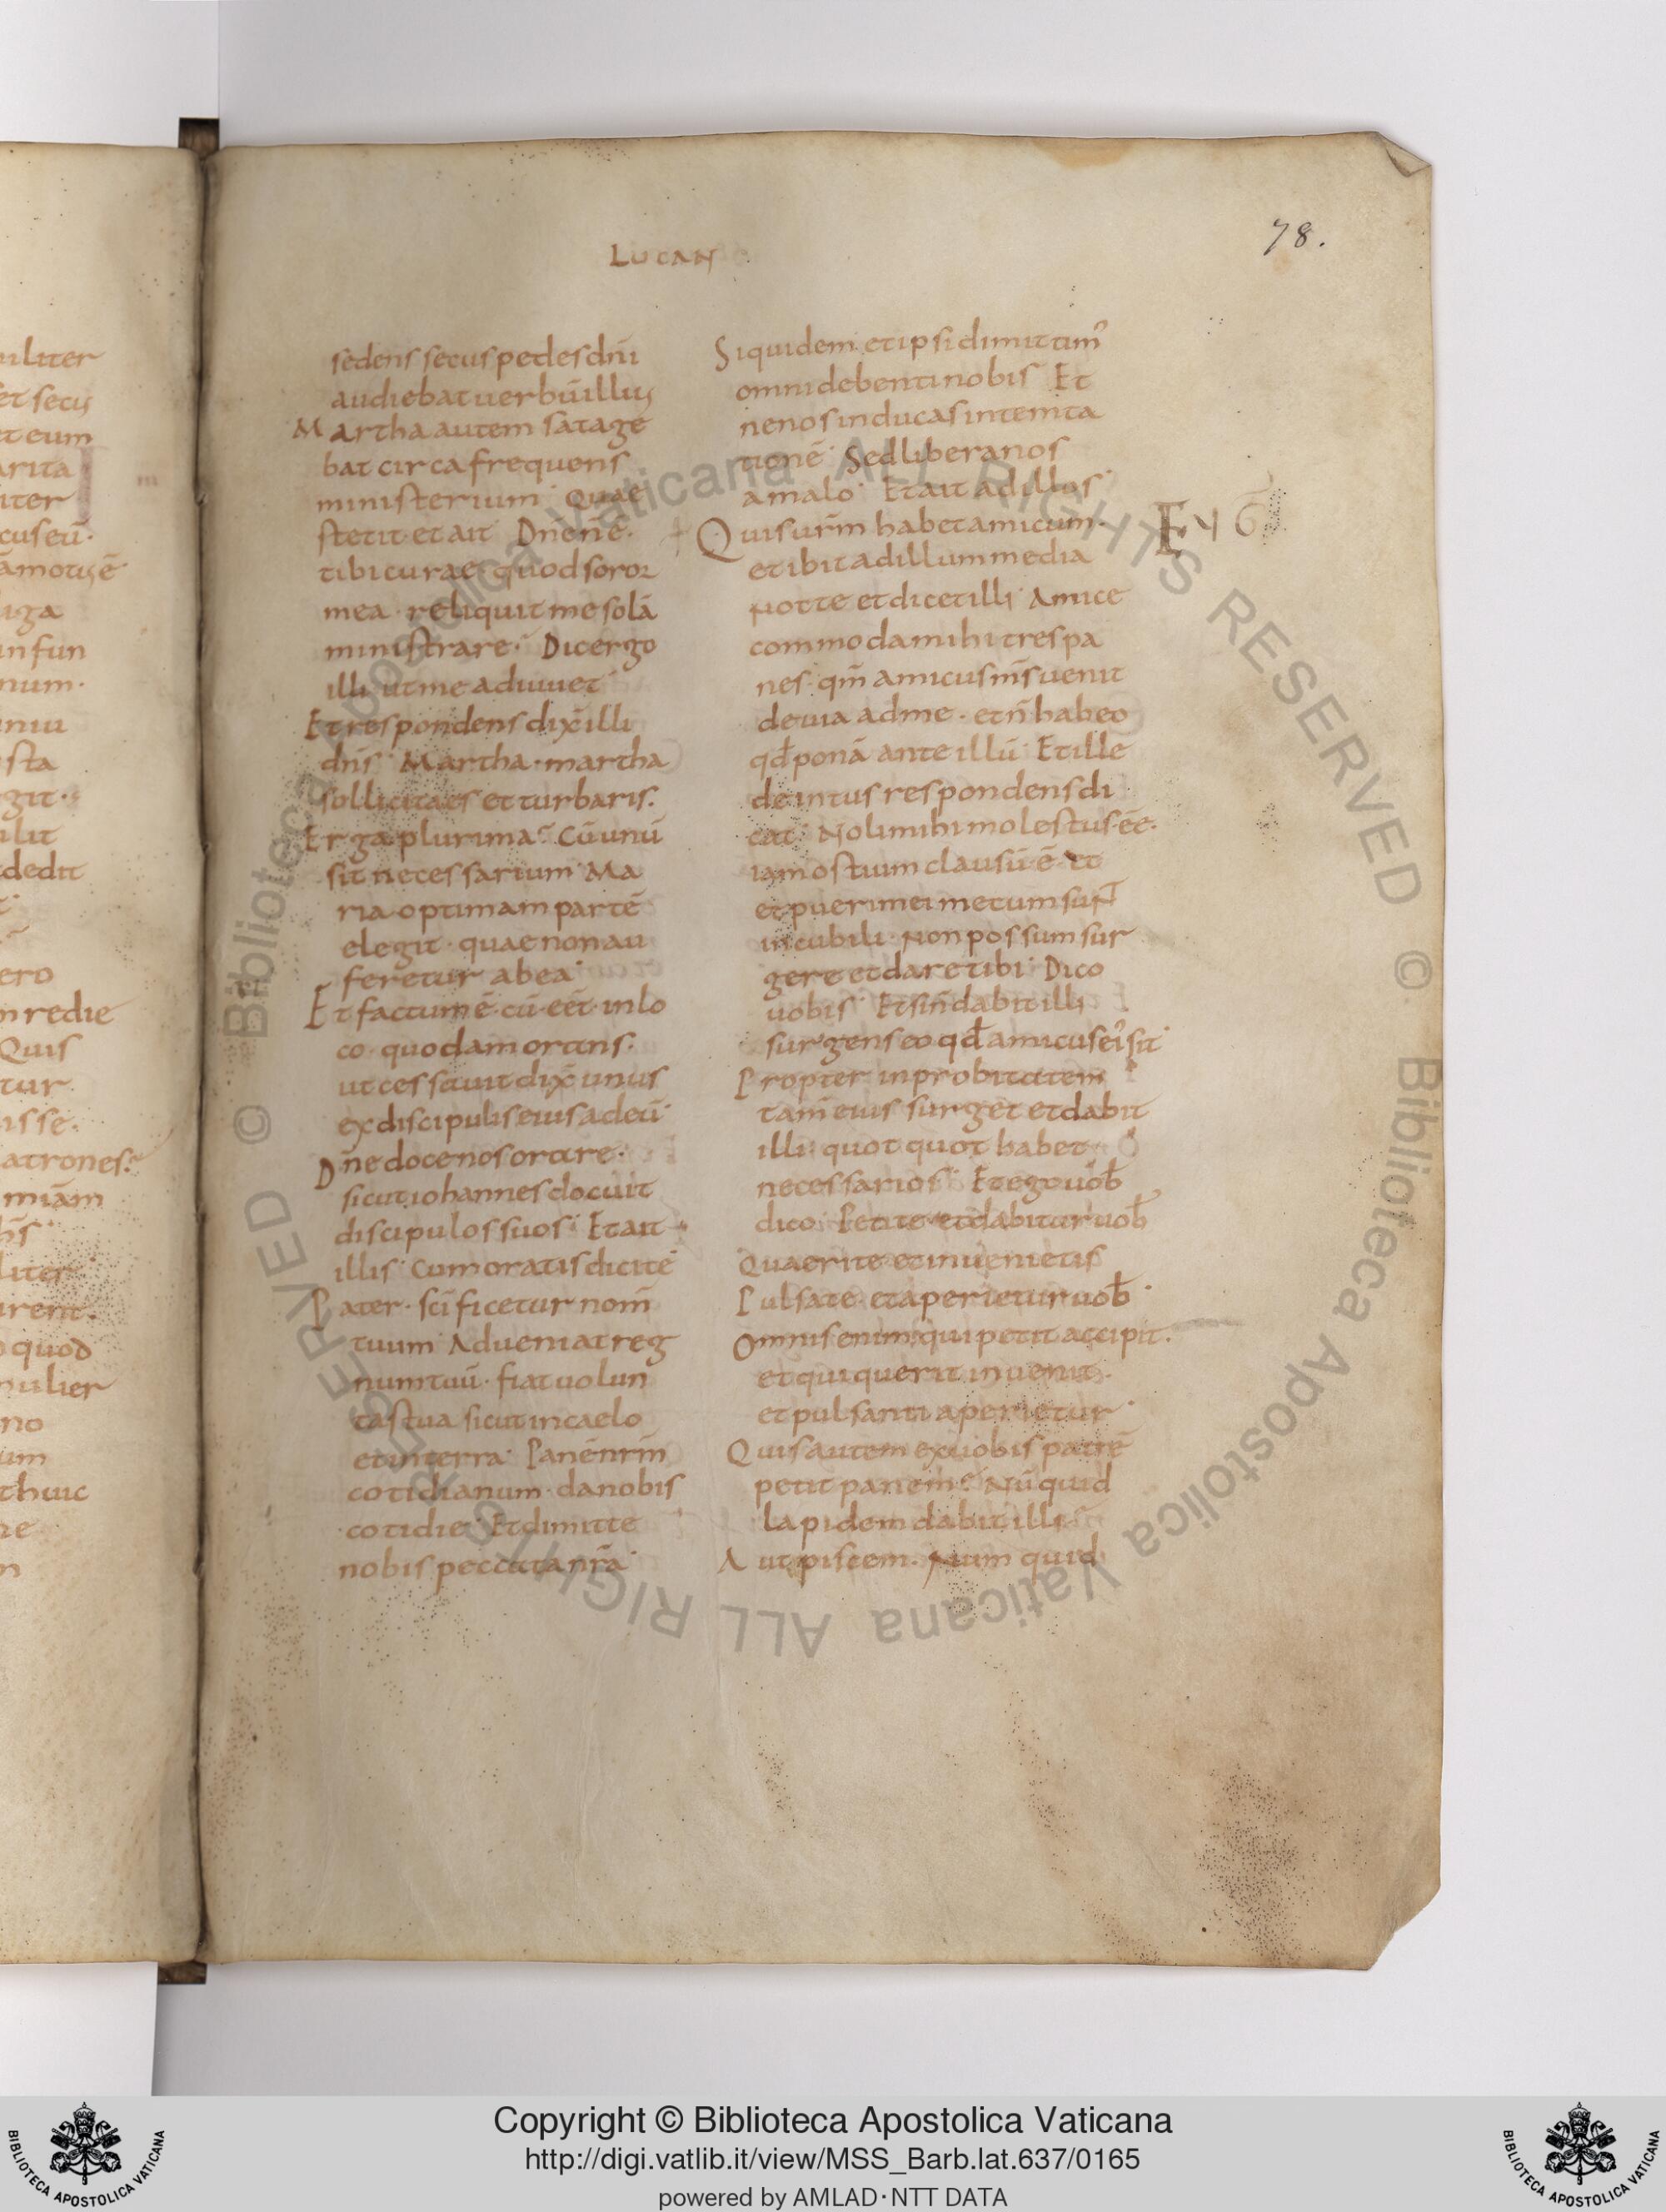 78.
LUCAN
sedens secus pedes dn̄i
audiebat uerbū illius
Martha autem satage
bat circa frequens
ministerium· Quae
stetit· et ait· Dn̄e n̄ ē·
tibi curae quod soror
mea· reliquit me solā
ministrare· Dic ergo
illi ut me adiuuet·
Et respondens dix̄ illi
dn̄s· Martha· martha
sollicita es et turbaris·
Erga plurima· Cū unū
sit necessarium· Ma
ria optimam partē
elegit· quae non au
feretur ab ea·
Et factum ē· cū· eēt· in lo
co· quodam orans·
ut cessauit dix̄ unus
ex discipulis eius ad eū·
Dn̄e doce nos orare·
sicut iohannes docuit
discipulos suos· Et ait
illis· Cum oratis dicite
Pater· sc̄ificetur nom̄
tuum· Adueniat reg
num tuū· fiat uolun
tas tua sicut in caelo
et in terra· Panē nr̄m
cotidianum· da nobis
cotidie· Et dimitte
nobis peccata nr̄a·
Siquidem et ipsi dimittim᾽
omni debenti nobis· Et
ne nos inducas in temta
tionē· Sed libera nos
a malo· Et ait ad illos·
Quis ur̄m habet amicum·
et ibit ad illum media
notte et dicet illi· Amice
commoda mihi tres pa
nes· qm̄ amicus m̄s uenit
de uia ad me· et n̄ habeo
qđ ponā ante illū· Et ille
de intus respondens di
cat· Noli mihi molestus· eē·
iam ostium clausū ē· et
et pueri mei metum sunt̄
in cubili· Non possum sur
gere et dare tibi· Dico
uobis· Et si n̄ dabit illi
surgens eo qđ amicus ei᾽ sit·
Propter inprobitatem
tam̄ eius surget et dabit
illi· quot quot habet
necessarios· Et ego uob̄
dico· Petite et dabitur uob̄
Quaerite et inuenietis
Pulsate· et aperietur uob̄·
Omnis enim· qui petit accipit·
et qui querit inuenit·
et pulsanti aperietur·
Quis autem ex uobis patrē
petit panem· Nūquid
lapidem dabit illi
Aut piscem· Num quid
iliter
et secus
et eum
arita
iter
cus eū·
iga
in fun
num·
niu
sta
git·
ilit
dedit
ero
n redie
Quis
tur
isse·
atrones·
miām
liter
urent·
quod
mulier
no
um
t huic
ne
© Biblioteca Apostolica Vaticana ALL RIGHTS RESERVED © Biblioteca Apostolica Vaticana ALL RIGHTS RESERVED
Copyright © Biblioteca Apostolica Vaticana
http://digi.vatlib.it/view/MSS_Barb.lat.637/0165
powered by AMLAD·NTT DATA
BIBLIOTECA APOSTOLICA VATICANA
BIBLIOTECA APOSTOLICA VATICANA